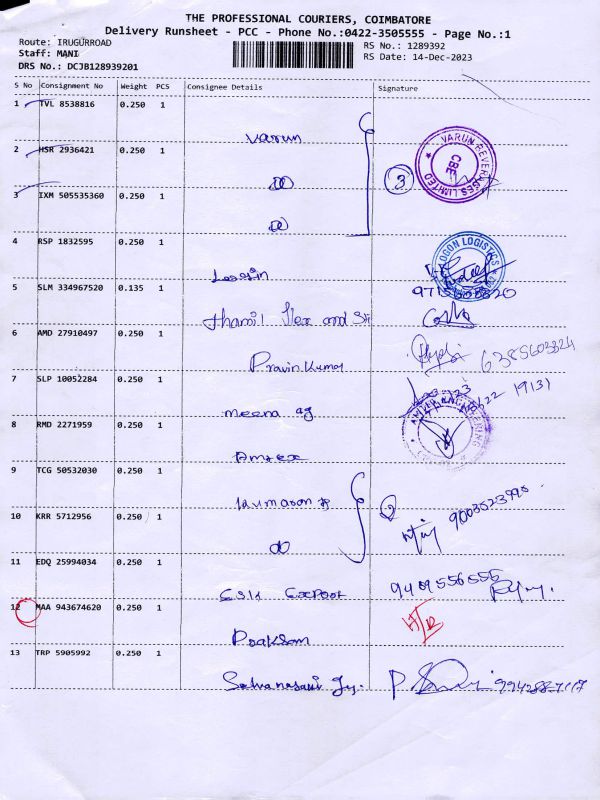 THE PROFESSIONAL COURIERS, COIMBATORE
Delivery Runsheet - PCC - Phone No.:0422-3505555 - Page No.:1
Route: IRUGURROAD
RS No.: 1289392
Staff: MANI
RS Date: 14-Dec-2023
DRS No.: DCJB128939201
S No Consignment No Weight PCS Consignee Details Signature
1 TVL 8538816 0.250 1
Varun
VARUN BEVERAGES LIMITED
CBE
2 HSR 2936421 0.250 1
3
3 IXM 505535360 0.250 1
4 RSP 1832595 0.250 1
LOGISTICS
5 SLM 334967520 0.135 1
Thamil flex and
6 AMD 27910497 0.250 1
Pravin Kumar
6385603324
7 SLP 10052284 0.250 1
meena ag
8 RMD 2271959 0.250 1
Amrex
9 TCG 50532030 0.250 1
2
10 KRR 5712956 0.250 1
11 EDQ 25994034 0.250 1
Export
12 MAA 943674620 0.250 1
13 TRP 5905992 0.250 1